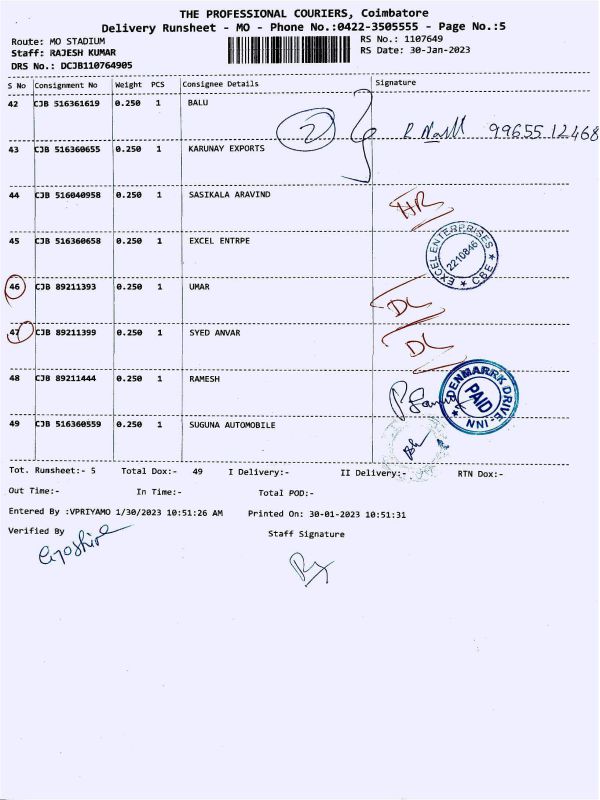 THE PROFESSIONAL COURIERS, Coimbatore
Delivery Runsheet - MO - Phone No.:0422-3505555 - Page No.:5
Route: MO STADIUM
RS No.: 1107649
Staff: RAJESH KUMAR
RS Date: 30-Jan-2023
DRS No.: DCJB110764905
S No Consignment No Weight PCS Consignee Details Signature
42 CJB 516361619 0.250 1 BALU
2 99655 12468
43 CJB 516360655 0.250 1 KARUNAY EXPORTS
44 CJB 516040958 0.250 1 SASIKALA ARAVIND
HR
45 CJB 516360658 0.250 1 EXCEL ENTRPE
EXCEL ENTERPRISES
2210846
★ CBE ★
46 CJB 89211393 0.250 1 UMAR
DL
47 CJB 89211399 0.250 1 SYED ANVAR
DL
48 CJB 89211444 0.250 1 RAMESH
DENMARRK DRIVE INN
PAID
49 CJB 516360559 0.250 1 SUGUNA AUTOMOBILE
Tot. Runsheet:- 5 Total Dox:- 49 I Delivery:- II Delivery:- RTN Dox:-
Out Time:- In Time:- Total POD:-
Entered By :VPRIYAMO 1/30/2023 10:51:26 AM Printed On: 30-01-2023 10:51:31
Verified By Staff Signature